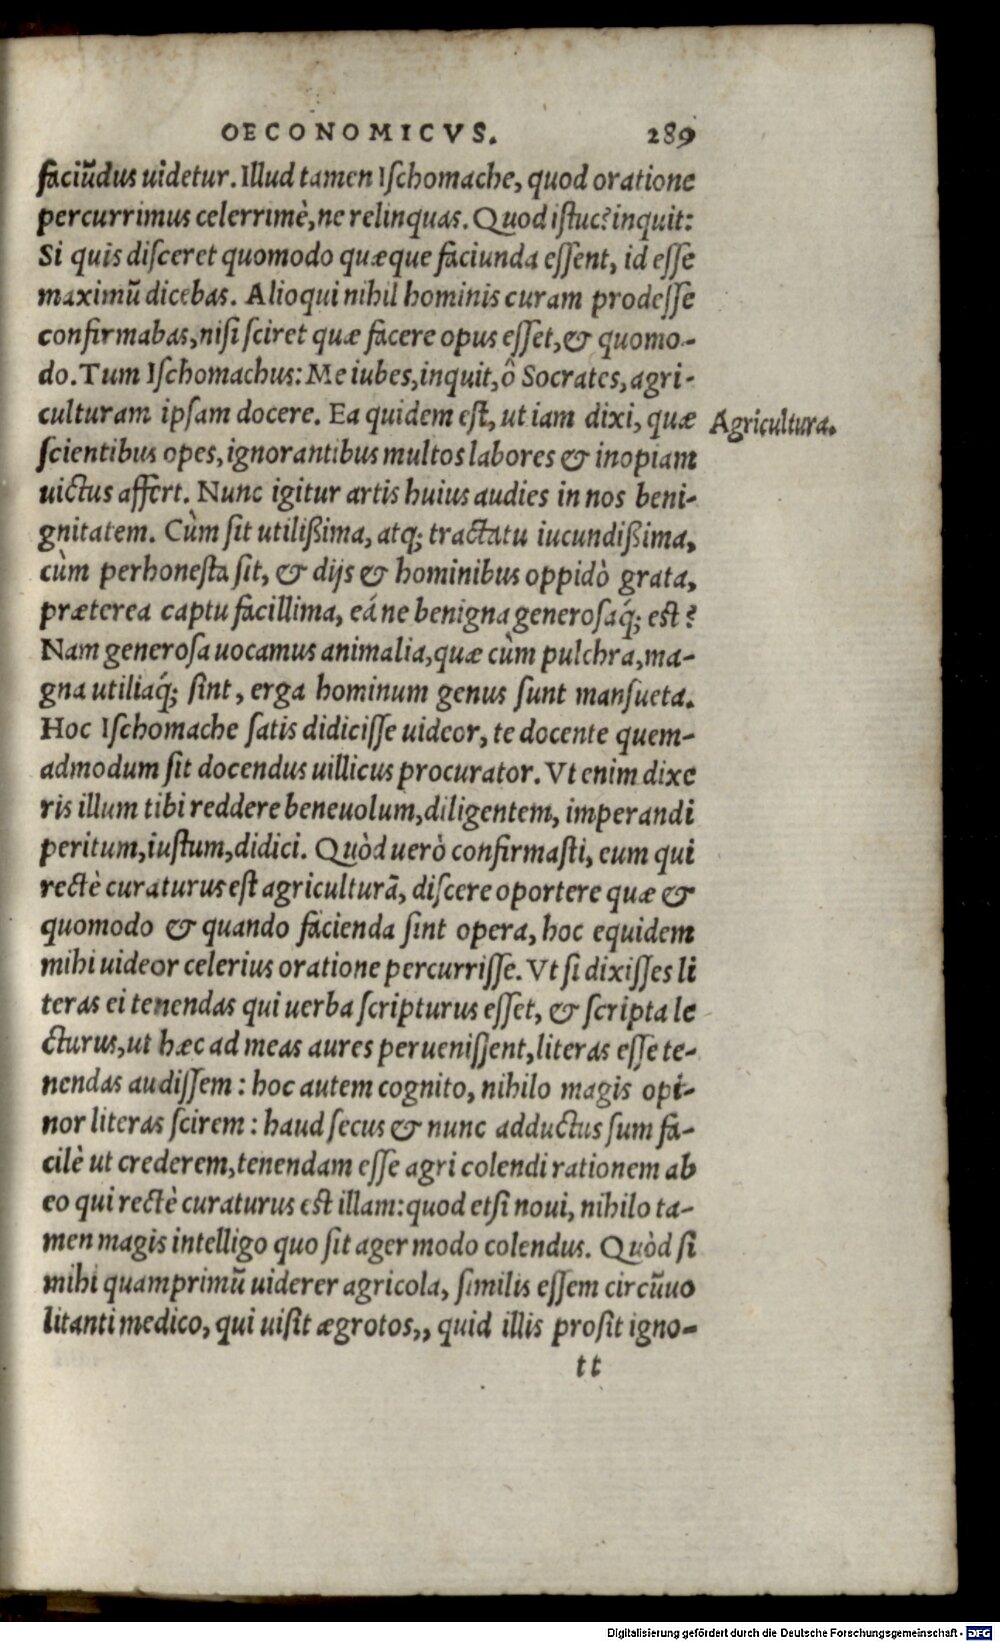 OECONOMICVS. 289
faciūdus uidetur. Illud tamen Iſchomache, quod oratione
percurrimus celerrimè, ne relinquas. Quod iſtuc? inquit:
Si quis diſceret quomodo quæque faciunda eſſent, id eſſe
maximū dicebas. Alioqui nihil hominis curam prodeſſe
confirmabas, niſi ſciret quæ facere opus eſſet, & quomo-
do. Tum Iſchomachus: Me iubes, inquit, ô Socrates, agri-
culturam ipſam docere. Ea quidem eſt, ut iam dixi, quæ
Agricultura.
ſcientibus opes, ignorantibus multos labores & inopiam
uictus affert. Nunc igitur artis huius audies in nos beni-
gnitatem. Cùm ſit utilißima, atq; tractatu iucundißima,
cùm perhoneſta ſit, & dijs & hominibus oppidò grata,
præterea captu facillima, eá ne benigna generoſaq́; est?
Nam generoſa uocamus animalia, quæ cùm pulchra, ma-
gna utiliaq́; ſint, erga hominum genus ſunt manſueta.
Hoc Iſchomache ſatis didiciſſe uideor, te docente quem-
admodum ſit docendus uillicus procurator. Vt enim dixe
ris illum tibi reddere beneuolum, diligentem, imperandi
peritum, iuſtum, didici. Quòd uerò confirmaſti, eum qui
rectè curaturus eſt agriculturā, diſcere oportere quæ &
quomodo & quando facienda ſint opera, hoc equidem
mihi uideor celerius oratione percurriſſe. Vt ſi dixiſſes li
teras ei tenendas qui uerba ſcripturus eſſet, & ſcripta le
cturus, ut hæc ad meas aures perueniſſent, literas eſſe te-
nendas audiſſem: hoc autem cognito, nihilo magis opi-
nor literas ſcirem: haud ſecus & nunc adductus ſum fa-
cilè ut crederem, tenendam eſſe agri colendi rationem ab
eo qui rectè curaturus est illam: quod etſi noui, nihilo ta-
men magis intelligo quo ſit ager modo colendus. Quòd ſi
mihi quamprimū uiderer agricola, ſimilis eſſem circūuo
litanti medico, qui uiſit ægrotos,, quid illis proſit igno-
tt
Digitalisierung gefördert durch die Deutsche Forschungsgemeinschaft - DFG